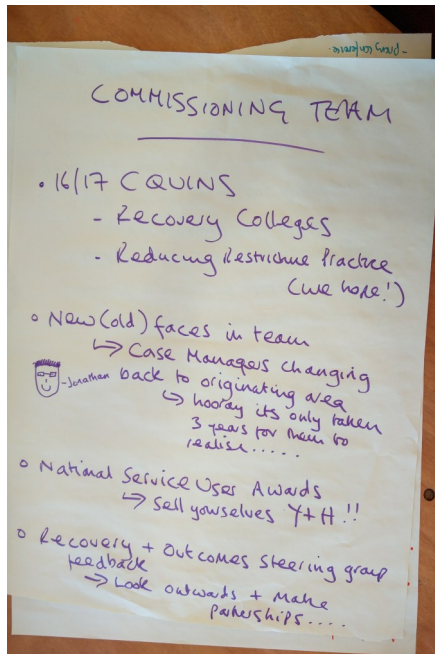 - proxy conference.
COMMISSIONING TEAM
• 16/17 CQUINS
- Recovery Colleges
- Reducing Restrictive Practice
(we hope!)
o New (old) faces in team
↳ Case Managers changing
- Jonathan back to originating area
↳ hooray its only taken
3 years for them to
realise.....
o National Service User Awards
↳ Sell yourselves Y+H !!
o Recovery + Outcomes Steering group
feedback
→ Look outwards + make
partnerships....